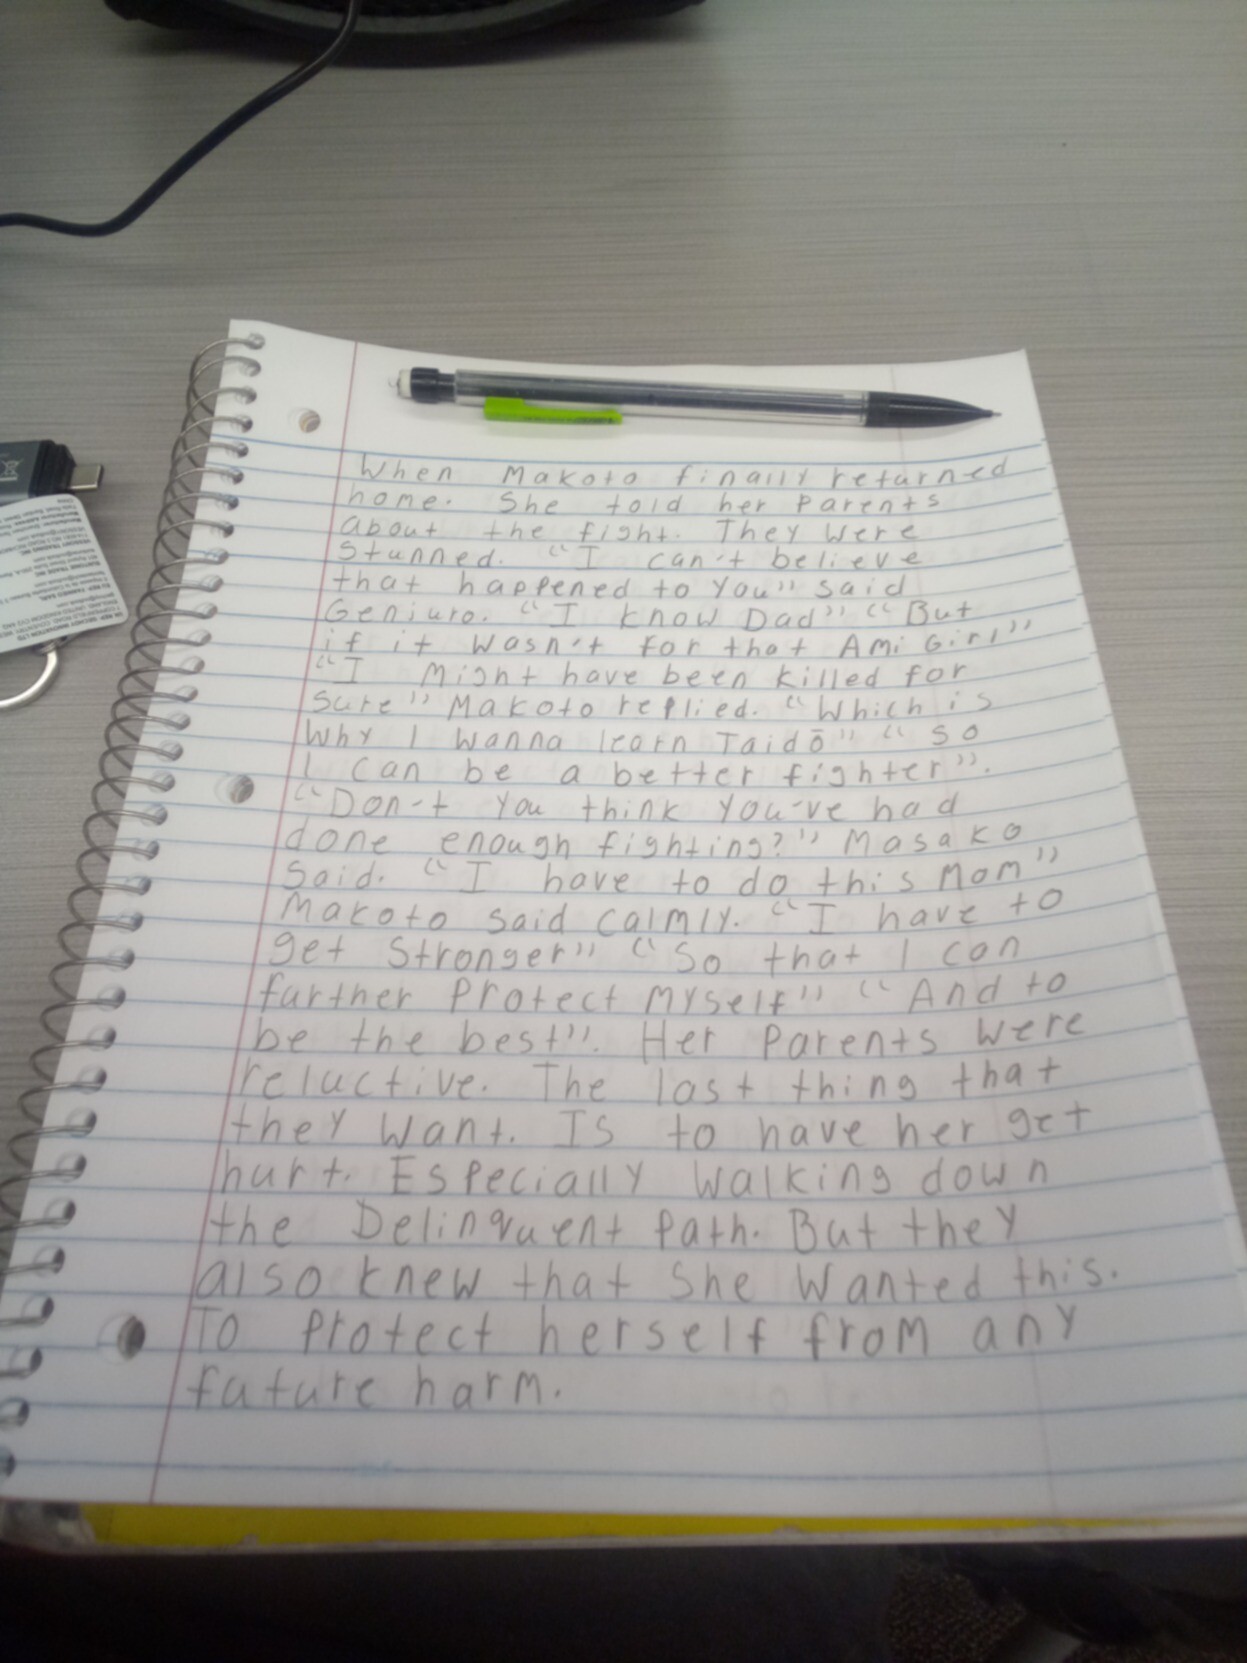 When Makoto finally returned
home. She told her Parents
about the fight. They were
Stunned. "I can't believe
that happened to You" said
Geniuro. "I know Dad" "But
if it wasn't for that Ami Girl"
"I Might have been killed for
Sure" Makoto replied. "Which is
Why I wanna learn Taidō" "So
I can be a better fighter".
"Don't You think You've had
done enough fighting?" Masako
Said. "I have to do this Mom"
Makoto said calmly. "I have to
get Stronger" "So that I can
further Protect Myself" "And to
be the best". Her Parents were
reluctive. The last thing that
they Want. Is to have her get
hurt. Especially Walking down
the Delinquent Path. But they
also knew that She Wanted this.
To Protect herself from any
future harm.